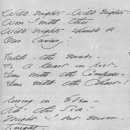 Wild Nights - Wild Nights!
Were I with thee
Wild Nights should be
Our luxury!
Futile - the winds -
To a Heart in port -
Done with the Compass -
Done with the Chart!
Rowing in Eden -
Ah - the Sea!
Might I but moor -